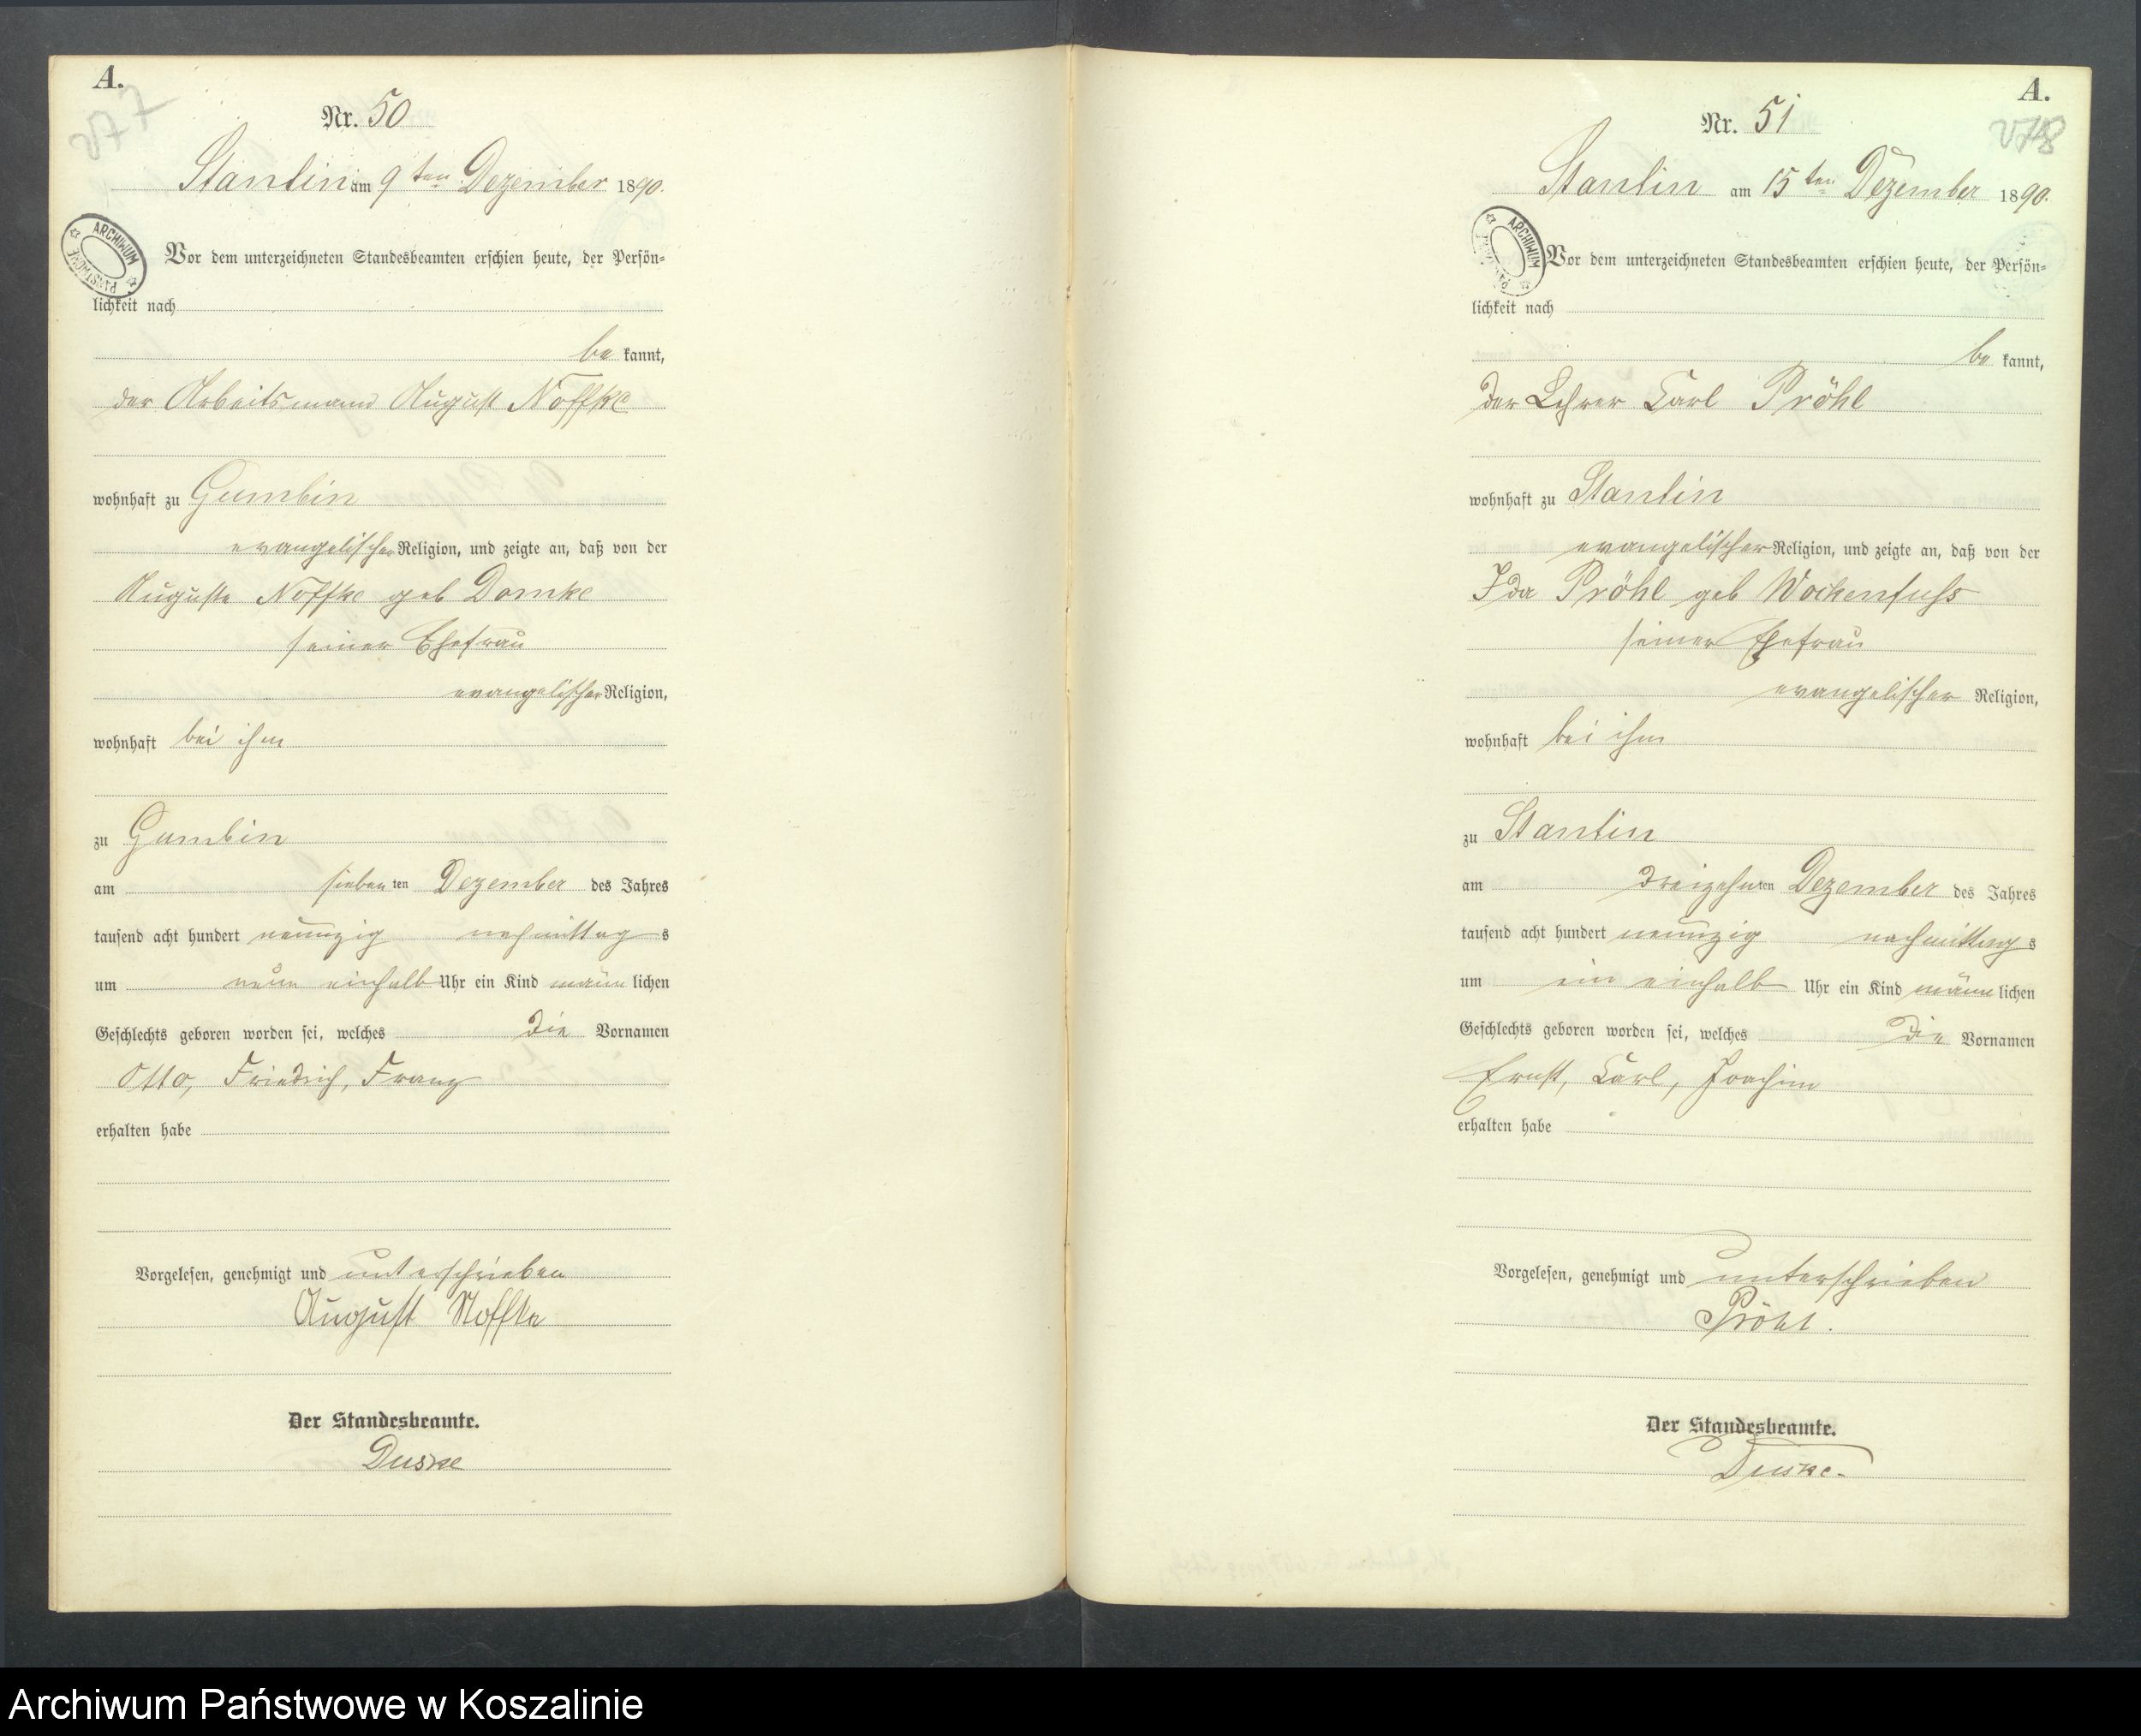 A.
277
Nr. 50
Stantin am 9ten Dezember 1890.
ARCHIWUM PAŃSTWOWE
Vor dem unterzeichneten Standesbeamten erschien heute, der Persön-
lichkeit nach
be kannt,
der Arbeitsmann August Noffke
wohnhaft zu Gumbin
evangelischer Religion, und zeigte an, daß von der
Auguste Noffke geb Domke
seiner Ehefrau
evangelischer Religion,
wohnhaft bei ihm
zu Gumbin
am sieben ten Dezember des Jahres
tausend acht hundert neunzig nachmittag s
um neun einhalb Uhr ein Kind männ lichen
Geschlechts geboren worden sei, welches die Vornamen
Otto, Friedrich, Franz
erhalten habe
Vorgelesen, genehmigt und unterschrieben
August Noffke
Der Standesbeamte.
Duske
A.
278
Nr. 51
Stantin am 15ten Dezember 1890.
ARCHIWUM
Vor dem unterzeichneten Standesbeamten erschien heute, der Persön-
lichkeit nach
be kannt,
der Lehrer Carl Pröhl
wohnhaft zu Stantin
evangelischer Religion, und zeigte an, daß von der
Ida Pröhl geb Wockenfuss
seiner Ehefrau
evangelischer Religion,
wohnhaft bei ihm
zu Stantin
am dreizehn ten Dezember des Jahres
tausend acht hundert neunzig nachmittag s
um ein einhalb Uhr ein Kind männ lichen
Geschlechts geboren worden sei, welches die Vornamen
Ernst, Carl, Joachim
erhalten habe
Vorgelesen, genehmigt und unterschrieben
Pröhl.
Der Standesbeamte.
Duske.
Archiwum Państwowe w Koszalinie